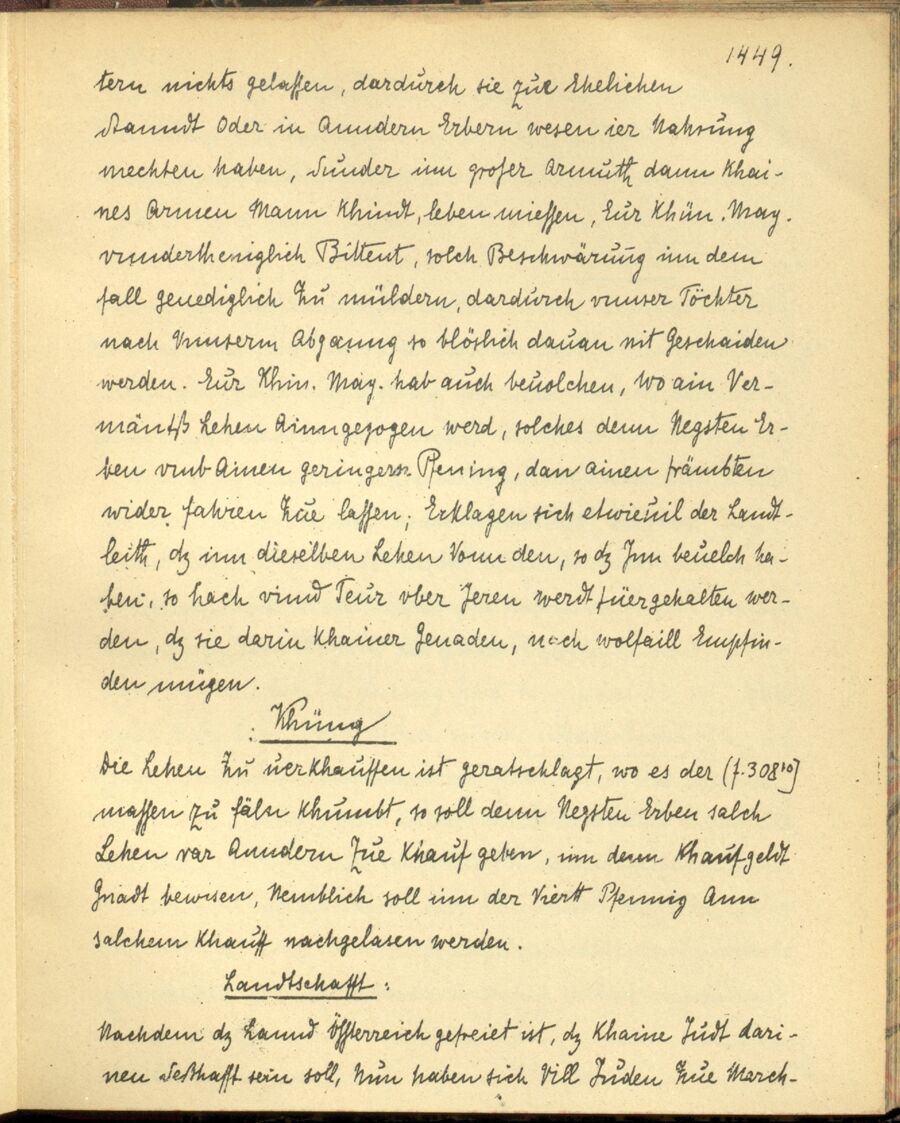 1449.
tern nichts gelassen, dardurch sie zue Ehelichen
Stanndt Oder in Anndern Erbern wesen ier Nahrung
mechten haben, Sunder inn groser Armuth dann Khai-
nes Armen Mann Khindt, leben miessen, Eur Khün. May.
vnnderthenigIich Bittent, solch Beschwärung inn dem
fall genediglich Zu müldern, dardurch vnnser Töchter
nach Vnnserm Abganng so blöslich dauan nit Geschaiden
werden. Eur Khin. May. hab auch beuolchen, wo ain Ver-
mäntß Lehen Ainngezogen werd, solches denn Negsten Er-
ben vmb Ainen geringern Pfening, dan ainen främbten
wider fahren Zue lassen; Erklagen sich etwieuil der Landt-
leith, dz inn dieselben Lehen Vonn den, so dz Inn beuelch ha-
ben, so hach vnnd Teur vber Jeren werdt füergehalten wer-
den, dz sie darin Khainer Genaden, noch wolfaill Empfin-
den mügen.
: Khünng
Die Lehen Zu uerkhauffen ist geratschlagt, wo es der (f. 308¹⁰)
massen zu fäln Khumbt, so soll denn Negsten Erben salch
Lehen var Anndern Zue Khauf geben, inn denn Khaufgeldt
Gnadt bewisen, Nemblich soll inn der Viertt Pfennig Ann
salchem Khauff nachgelasen werden.
Landtschafft :
Nachdem dz Lannd Össterreich gefreiet ist, dz Khaine Judt dari-
nen Seßhafft sein soll, Nun haben sich Vill Juden Zue March-